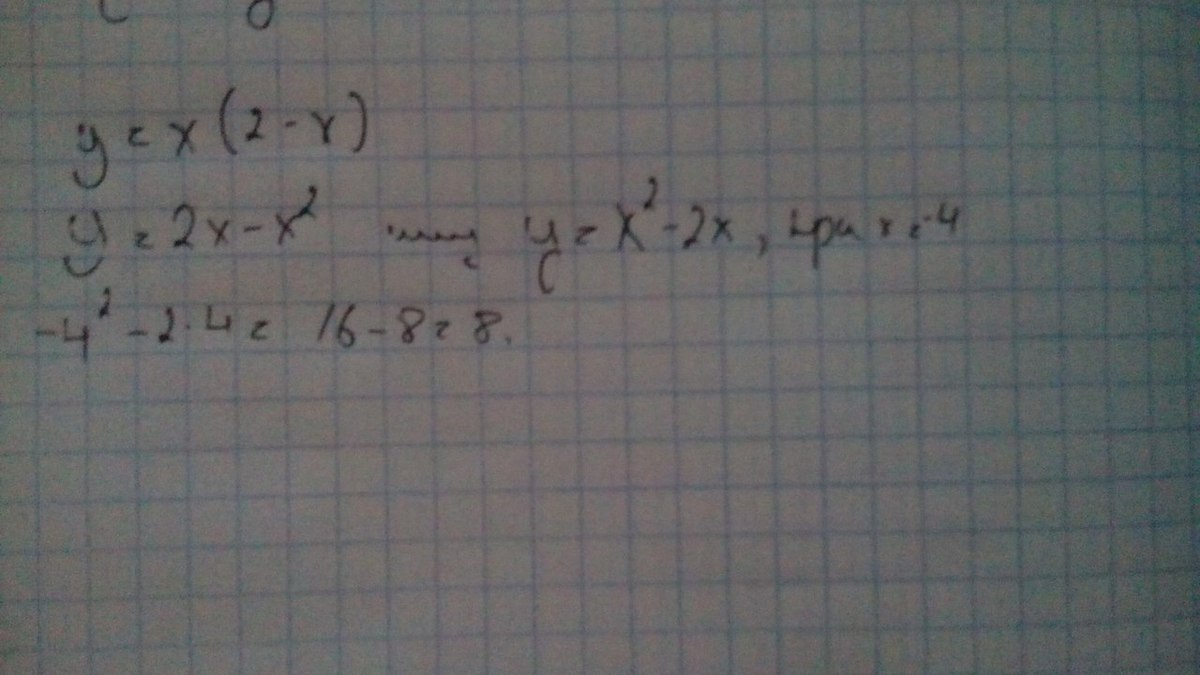 y = x (2 - x)
y = 2x - x² y = x² - 2x, при x = -4
-4² - 2·4 = 16 - 8 = 8.